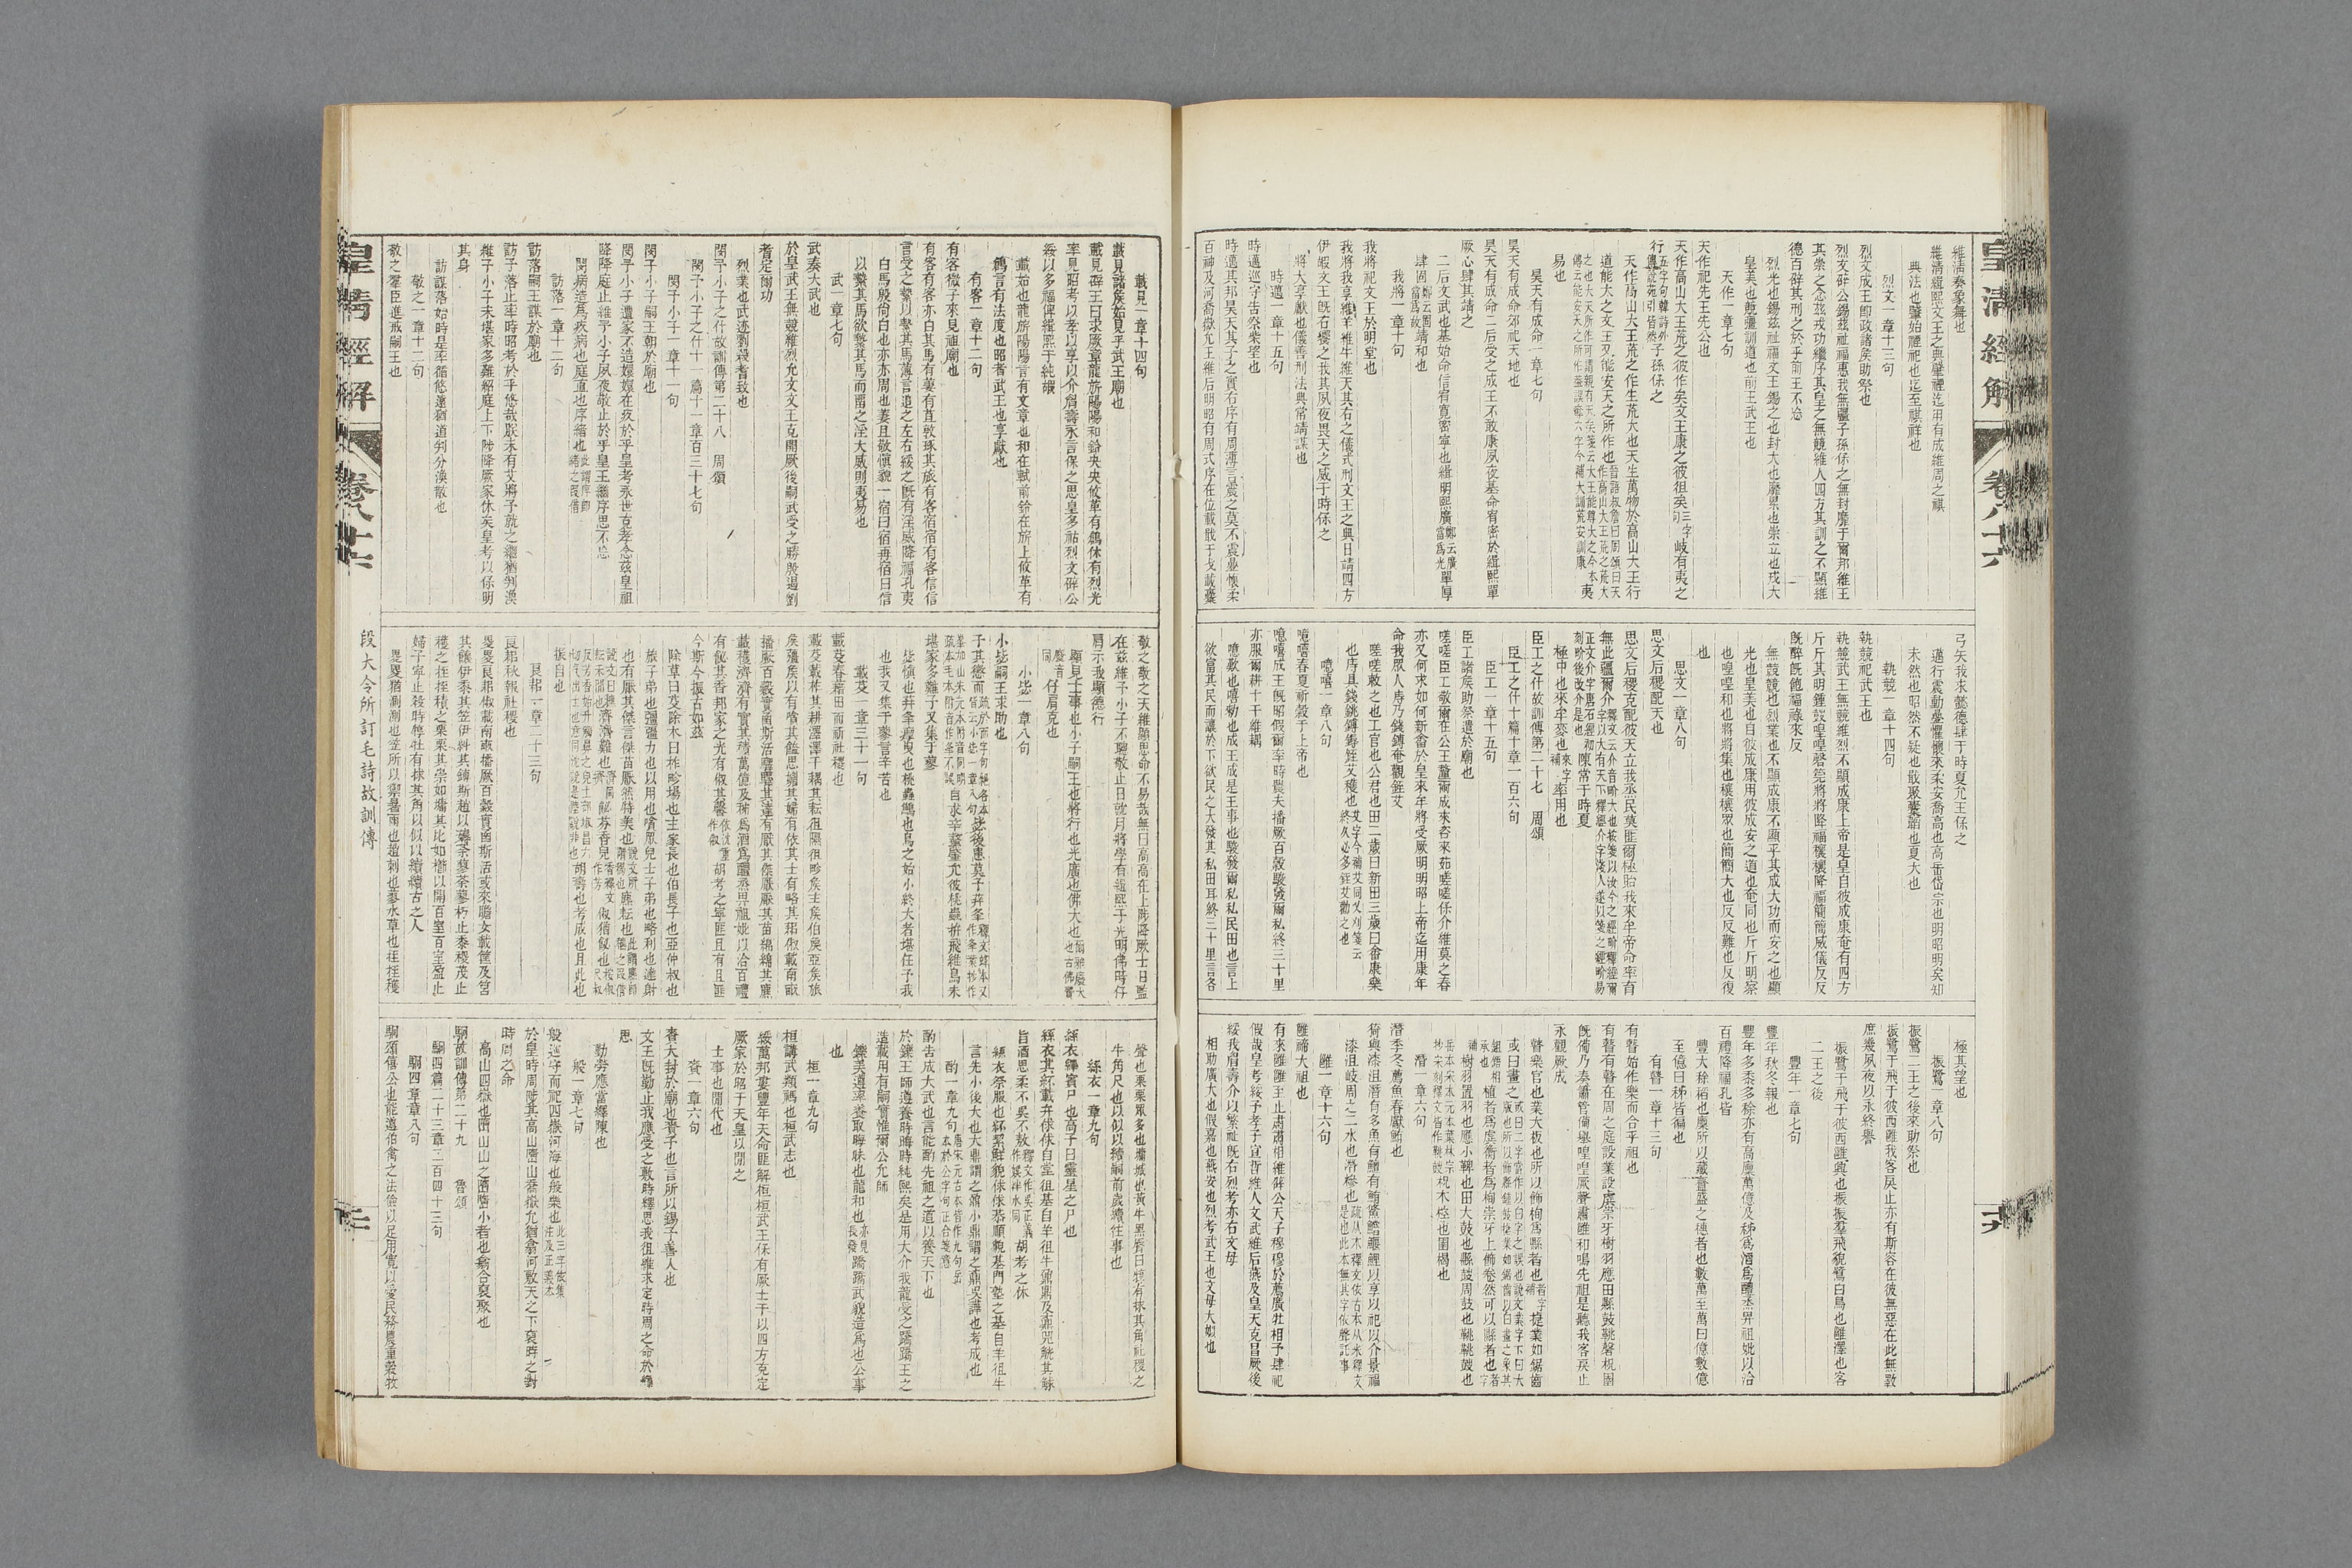 皇清經解
卷八十六
維清奏象舞也
維清緝熙文王之典肈禋迄用有成維周之祺
典法也肇始禋祀也迄至祺祥也
烈文一章十三句
烈文成王卽政諸矦助祭也
烈文辟公錫茲祉福惠我無疆子孫保之無封靡于爾邦維王
其崇之念茲戎功繼序其皇之無競維人四方其訓之不顯維
德百辟其刑之於乎前王不忘
烈光也錫茲祉福文王錫之也封大也靡累也崇立也戎大
皇美也競彊訓道也前王武王也
天作一章七句
天作祀先王先公也
天作高山大王荒之彼作矣文王康之彼徂矣三字句岐有夷之
行子孫保之
天作高山大王荒之作生荒大也天生萬物於高山大王行
道能大之文王又能安天之所作也
易也
昊天有成命一章七句
昊天有成命郊祀天地也
昊天有成命二后受之成王不敢康夙夜基命宥密於緝熙單
厥心肆其靖之
二后文武也基始命信宥寬密寧也緝明熙廣鄭云廣當爲光單厚
肆固鄭云固當爲故靖和也
我將一章十句
我將祀文王於明堂也
我將我享維羊維牛維天其右之儀式刑文王之典日靖四方
伊嘏文王旣右饗之我其夙夜畏天之威于時保之
將大享獻也儀善刑法典常靖謀也
時邁一章十五句
時邁巡守告祭柴望也
時邁其邦昊天其子之實右序有周薄言震之莫不震疊懷柔
百神及河喬嶽允王維后明昭有周式序在位載戢干戈載櫜
弓矢我求懿德肆于時夏允王保之
邁行震動疊懼懷來柔安喬高也高岳岱宗也明昭明矣知
未然也昭然不疑也戢聚櫜韜也夏大也
執競一章十四句
執競祀武王也
執競武王無競維烈不顯成康上帝是皇自彼成康奄有四方
斤斤其明鍾鼓喤喤磬筦將將降福穰穰降福簡簡威儀反反
旣醉旣飽福祿來反
無競競也烈業也不顯成康不顯乎其成大功而安之也顯
光也皇美也自彼成康用彼成安之道也奄同也斤斤明察
也喤喤和也將將集也穰穰眾也簡簡大也反反難也反復
也
思文一章八句
思文后稷配天也
思文后稷克配彼天立我烝民莫匪爾極貽我來牟帝命率有
無此疆爾介陳常于時夏
極中也來牟麥也率用也
臣工之什故訓傳第二十七　周頌
臣工之什十篇十章一百六句
臣工一章十五句
臣工諸矦助祭遣於廟也
嗟嗟臣工敬爾在公王釐爾成來咨來茹嗟嗟保介維莫之春
亦又何求如何新畬於皇來牟將受厥明明昭上帝迄用康年
命我眾人庤乃錢鎛奄觀銍艾
嗟嗟敕之也工官也公君也田二歲曰新田三歲曰畬康樂
也庤具錢銚鎛鎒銍艾穫也
噫嘻一章八句
噫嘻春夏祈穀于上帝也
噫嘻成王旣昭假爾率時農夫播厥百穀駿發爾私終三十里
亦服爾耕十千維耦
噫歎也嘻勑也成王成是王事也駿發爾私私民田也言上
欲富其民而讓於下欲民之大發其私田耳終三十里言各
極其望也
振鷺一章八句
振鷺二王之後來助祭也
振鷺于飛于彼西雝我客戾止亦有斯容在彼無惡在此無斁
庶幾夙夜以永終譽
振鷺于飛于彼西雝興也振振羣飛貌鷺白鳥也雝澤也客
二王之後
豐年一章七句
豐年秋冬報也
豐年多黍多稌亦有高廩萬億及秭爲酒爲醴烝畀祖妣以洽
百禮降福孔皆
豐大稌稻也廩所以藏齍盛之穗者也數萬至萬曰億數億
至億曰秭皆徧也
有瞽一章十三句
有瞽始作樂而合乎祖也
有瞽有瞽在周之庭設業設虡崇牙樹羽應田縣鼓鞉磬柷圉
旣備乃奏簫管備舉喤喤厥聲肅雝和鳴先祖是聽我客戾止
永觀厥成
瞽樂官也業大板也所以飾栒爲縣者也捷業如鋸齒
或曰畫之植者爲虡衡者爲栒崇牙上飾卷然可以縣者也
樹羽置羽也應小鞞也田大鼓也縣鼓周鼓也鞉鞉鼓也
柷木椌也圉楬也
潛一章六句
潛季冬薦魚春獻鮪也
猗與漆沮潛有多魚有鱣有鮪鰷鱨鰋鯉以享以祀以介景福
漆沮岐周之二水也潛椮也
雝一章十六句
雝禘大祖也
有來雝雝至止肅肅相維辟公天子穆穆於薦廣牡相予肆祀
假哉皇考綏予孝子宣哲維人文武維后燕及皇天克昌厥後
綏我眉壽介以繁祉旣右烈考亦右文母
相助廣大也假嘉也燕安也烈考武王也文母大姒也
載見一章十四句
載見諸矦始見乎武王廟也
載見辟王曰求厥章龍旂陽陽和鈴央央鞗革有鶬休有烈光
率見昭考以孝以享以介眉壽永言保之思皇多祜烈文辟公
綏以多福俾緝熙于純嘏
載始也龍旂陽陽言有文章也和在軾前鈴在旂上鞗革有
鶬言有法度也昭考武王也享獻也
有客一章十二句
有客微子來見祖廟也
有客有客亦白其馬有萋有苴敦琢其旅有客宿宿有客信信
言受之縶以縶其馬薄言追之左右綏之旣有淫威降福孔夷
白馬殷尙白也亦亦周也萋且敬愼貌一宿曰宿再宿曰信
以縶其馬欲縶其馬而畱之淫大威則夷易也
武一章七句
武奏大武也
於皇武王無競維烈允文文王克開厥後嗣武受之勝殷遏劉
耆定爾功
烈業也武迹劉殺耆致也
閔予小子之什故訓傳第二十八　周頌
閔予小子之什十一篇十一章百三十七句
閔予小子一章十一句
閔予小子嗣王朝於廟也
閔予小子遭家不造嬛嬛在疚於乎皇考永世克孝念茲皇祖
陟降庭止維予小子夙夜敬止於乎皇王繼序思不忘
閔病造爲疚病也庭直也序緒也
訪落一章十二句
訪落嗣王謀於廟也
訪予落止率時昭考於乎悠哉朕未有艾將予就之繼猶判渙
維予小子未堪家多難紹庭上下陟降厥家休矣皇考以保明
其身
訪謀落始時是率循悠遠猶道判分渙散也
敬之一章十二句
敬之羣臣進戒嗣王也
敬之敬之天維顯思命不易哉無曰高高在上陟降厥士日監
在茲維予小子不聰敬止日就月將學有緝熙于光明佛時仔
肩示我顯德行
顯見士事也小子嗣王也將行也光廣也佛大也
仔肩克也
小毖一章八句
小毖嗣王求助也
予其懲而毖後患莫予荓蜂自求辛螫肈允彼桃蟲拚飛維鳥未
堪家多難予又集于蓼
毖愼也荓蜂摩曳也桃蟲鷦也鳥之始小終大者堪任予我
也我又集于蓼言辛苦也
載芟一章三十一句
載芟春藉田而祈社稷也
載芟載柞其耕澤澤千耦其耘徂隰徂畛矦主矦伯矦亞矦旅
矦彊矦以有嗿其饁思媚其婦有依其士有略其耜俶載南畝
播厥百穀實函斯活驛驛其達有厭其傑厭厭其苗緜緜其麃
載穫濟濟有實其積萬億及秭爲酒爲醴烝畀祖妣以洽百禮
有飶其香邦家之光有椒其馨胡考之寧匪且有且匪
今斯今振古如茲
除草曰芟除木曰柞畛場也主家長也伯長子也亞仲叔也
旅子弟也彊彊力也以用也嗿眾皃士子弟也略利也達射
也有厭其傑言傑苗厭然特美也麃耘也
濟濟難也飶芬香皃椒猶飶也
胡壽也考成也且此也
振自也
良耜一章二十三句
良耜秋報社稷也
畟畟良耜俶載南畝播厥百穀實函斯活或來瞻女載筐及筥
其饟伊黍其笠伊糾其鎛斯趙以薅荼蓼荼蓼朽止黍稷茂止
穫之挃挃積之栗栗其崇如墉其比如櫛以開百室百室盈止
婦子寧止殺時犉牡有捄其角以似以續續古之人
畟畟猶測測也笠所以禦暑雨也趙刺也蓼水草也挃挃穫
聲也栗栗眾多也墉城也黃牛黑脣曰犉有捄其角社稷之
牛角尺也以似以續嗣前歲續往事也
絲衣一章九句
絲衣繹賓尸也高子曰靈星之尸也
絲衣其紑載弁俅俅自堂徂基自羊徂牛鼐鼎及鼒兕觥其觩
旨酒思柔不吳不敖胡考之休
絲衣祭服也紑絜鮮貌俅俅恭順貌基門塾之基自羊徂牛
言先小後大也大鼎謂之鼐小鼎謂之鼒吳譁也考成也
酌一章九句
酌告成大武也言能酌先祖之道以養天下也
於鑠王師遵養時晦時純熙矣是用大介我龍受之蹻蹻王之
造載用有嗣實惟爾公允師
鑠美遵率養取晦昧也龍和也蹻蹻武貌造爲也公事
也
桓一章九句
桓講武類禡也桓武志也
綏萬邦婁豐年天命匪解桓桓武王保有厥士于以四方克定
厥家於昭于天皇以閒之
士事也閒代也
賚一章六句
賚大封於廟也賚予也言所以錫予善人也
文王旣勤止我應受之敷時繹思我徂維求定時周之命於繹
思
勤勞應當繹陳也
般一章七句
般巡守而祀四嶽河海也般樂也
於皇時周陟其高山嶞山喬嶽允猶翕河敷天之下裒時之對
時周之命
高山四嶽也嶞山山之嶞嶞小者也翕合裒聚也
駉故訓傳第二十九　魯頌
駉四篇二十三章二百四十三句
駉四章章八句
駉頌僖公也能遵伯禽之法儉以足用寬以愛民務農重穀牧
段大令所訂毛詩故訓傳
皇清經解